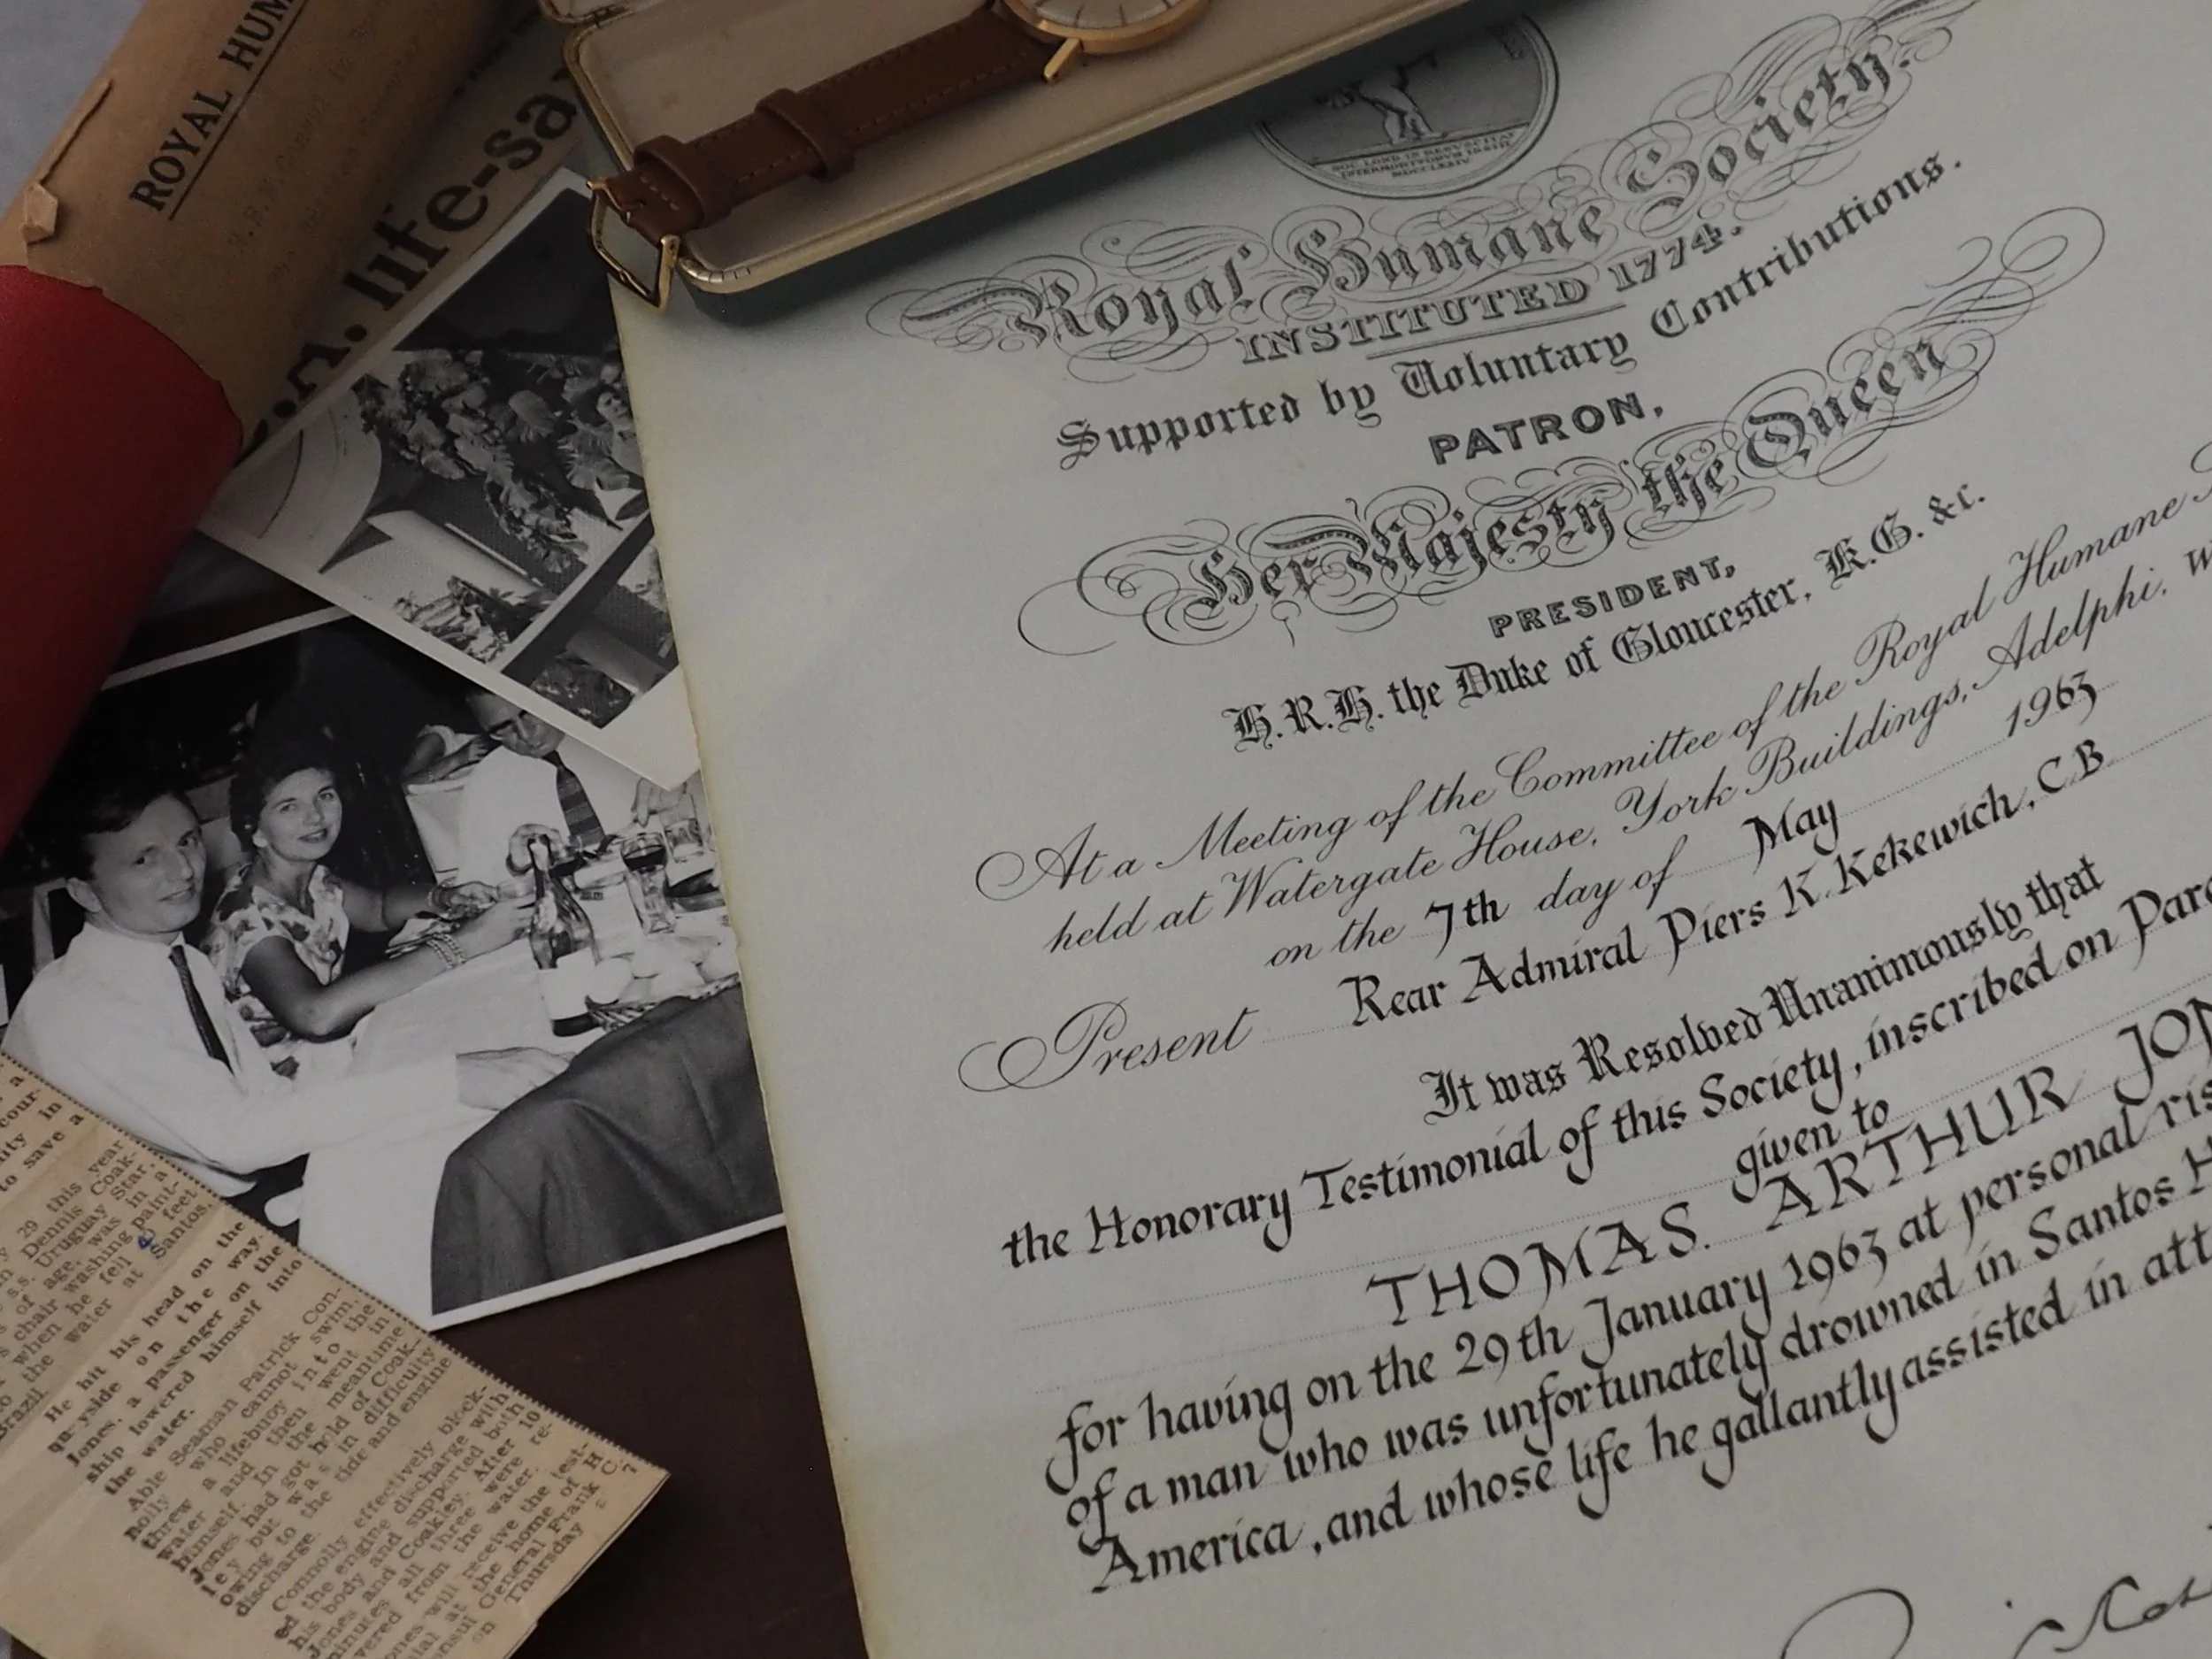 ROYAL HUM
life-sa
HOC LOND IN
MDCCLXXIV
Royal Humane Society.
INSTITUTED 1774.
Supported by Voluntary Contributions.
PATRON,
Her Majesty the Queen
PRESIDENT,
H.R.H. the Duke of Gloucester, K.G. &c.
At a Meeting of the Committee of the Royal Humane S
held at Watergate House, York Buildings, Adelphi, W
on the 7th day of May 1963
Present Rear Admiral Piers K. Kekewich, C.B
It was Resolved Unanimously that
the Honorary Testimonial of this Society, inscribed on Parc
given to
THOMAS. ARTHUR JON
for having on the 29th January 1963 at personal ris
of a man who was unfortunately drowned in Santos H
America, and whose life he gallantly assisted in att
a
cour-
ity in
to save a
29 this year
Dennis Coak-
s.s. Uruguay Star,
of age, was in a
chair washing paint-
when he fell 40 feet
to the water at Santos,
Brazil.
He hit his head on the
quayside on the way.
Jones, a passenger on the
ship lowered himself into
the water.
Able Seaman Patrick Con-
nolly who cannot swim,
threw a lifebuoy into the
water and then went in
himself. In the meantime
Jones had got hold of Coak-
ley but was in difficulty
owing to the tide and engine
discharge.
Connolly effectively block-
ed the engine discharge with
his body and supported both
Jones and Coakley. After 10
minutes all three were re-
vered from the water.
ones will receive the test-
ial at the home of H
onsul General Frank
on Thursday